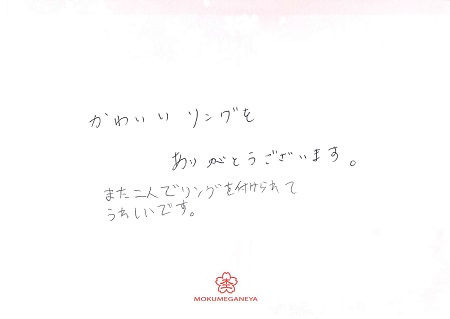 かわいいリングを
ありがとうございます。
また二人でリングを付けられて
うれしいです。
MOKUMEGANEYA